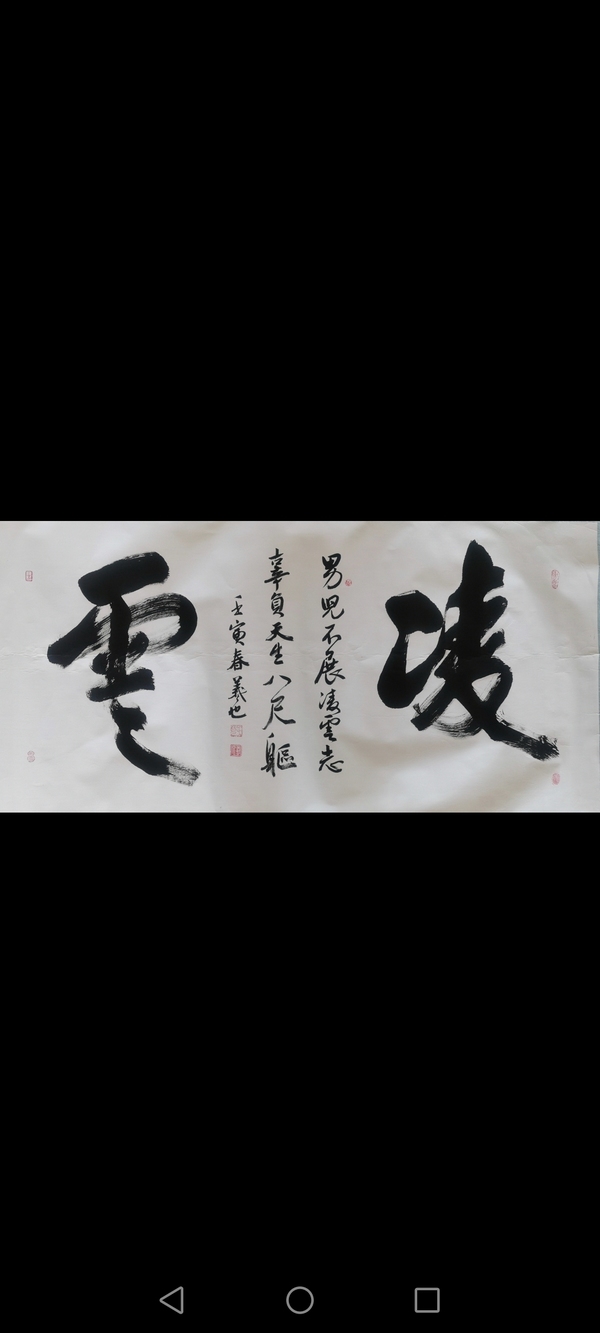 凌
男兒不展凌雲志
辜負天生八尺軀
壬寅春羲也
雲